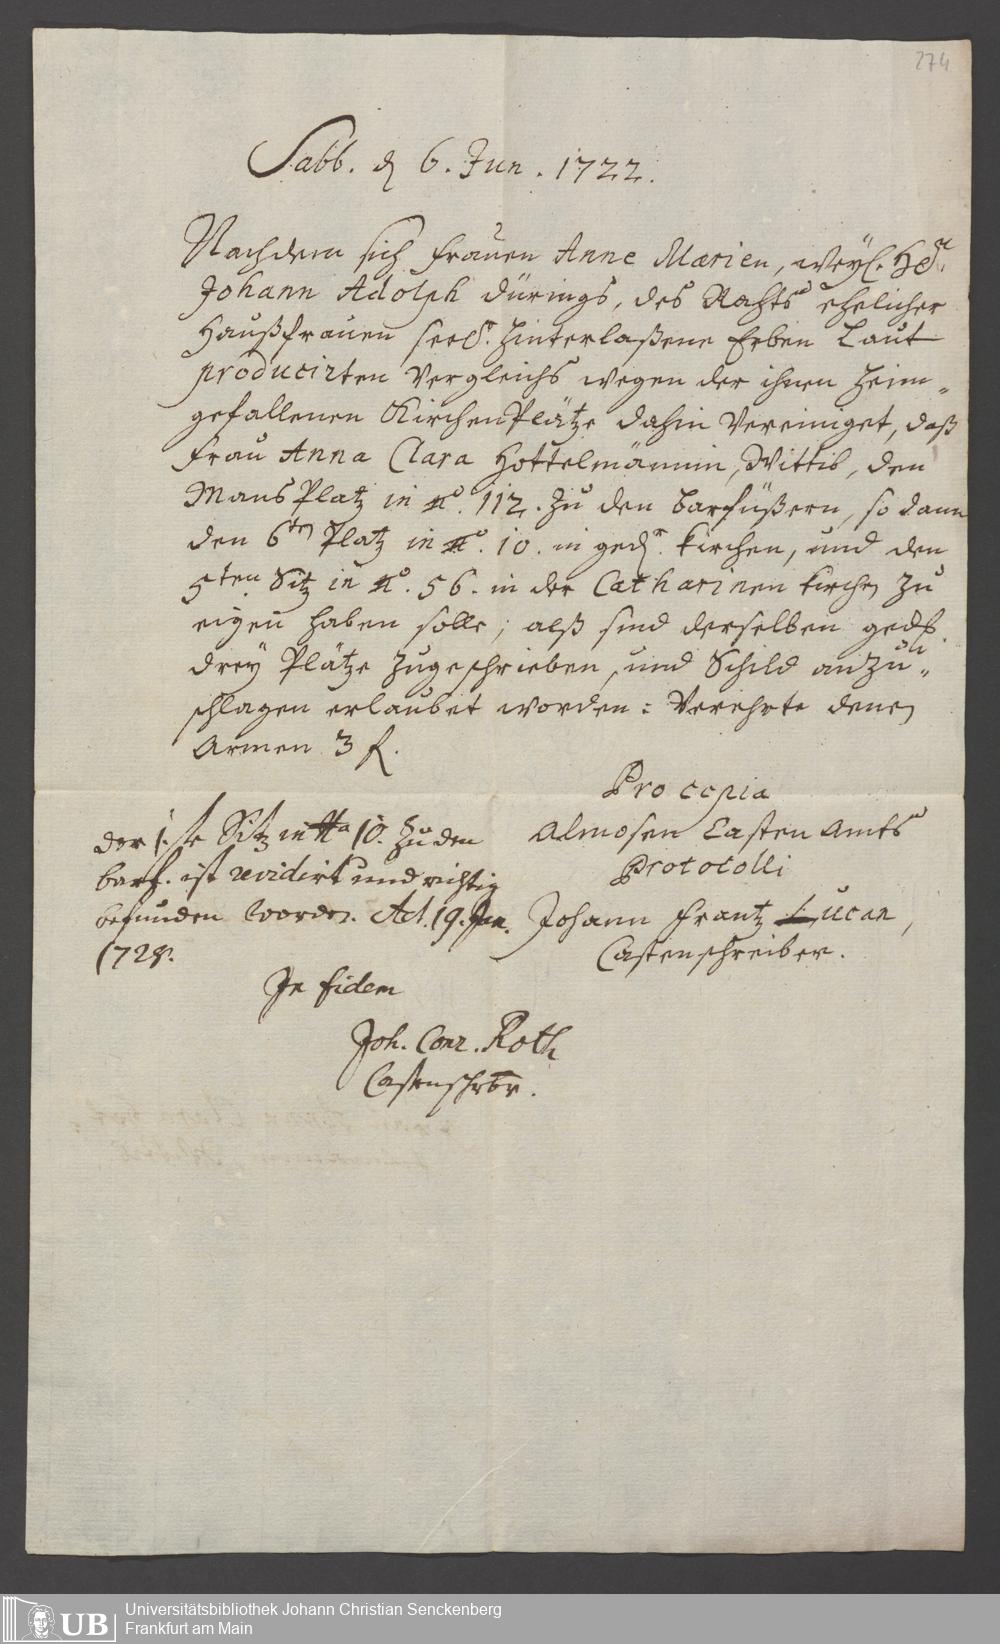 274
Sabb. d 6. Jun. 1722.
Nachdem sich Frauen Anne Marien, weyl. H.
Johann Adolph Dürings, des Rahts ehelicher
Haußfrauen seel. hinterlaßene Erben Laut
producirten Vergleichs wegen der ihnen heim-
gefallenen KirchenPlätze dahin vereiniget, daß
Frau Anna Clara Hottelmännin, Wittib, den
MansPlatz in No. 112. zu den Barfüßern, so dann
den 6ten Platz in No. 10. in ged. Kirchen, und den
5ten Sitz in No. 56. in der Catharinen Kirchen zu
eigen haben solle; alß sind derselben ged.
drey Plätze zugeschrieben, und Schild anzu-
schlagen erlaubet worden: Verehrte denen
Armen 3 f.
Pro copia
Almosen Casten Amts
Protocolli
Johann Frantz Lucan,
Castenschreiber.
der 1.ste Sitz in No 10. zu den
barf. ist revidirt und richtig
befunden worden. Act. 19. Jan.
1728.
In fidem
Joh. Conr. Roth
Castenschrbr.
UB
Universitätsbibliothek Johann Christian Senckenberg
Frankfurt am Main